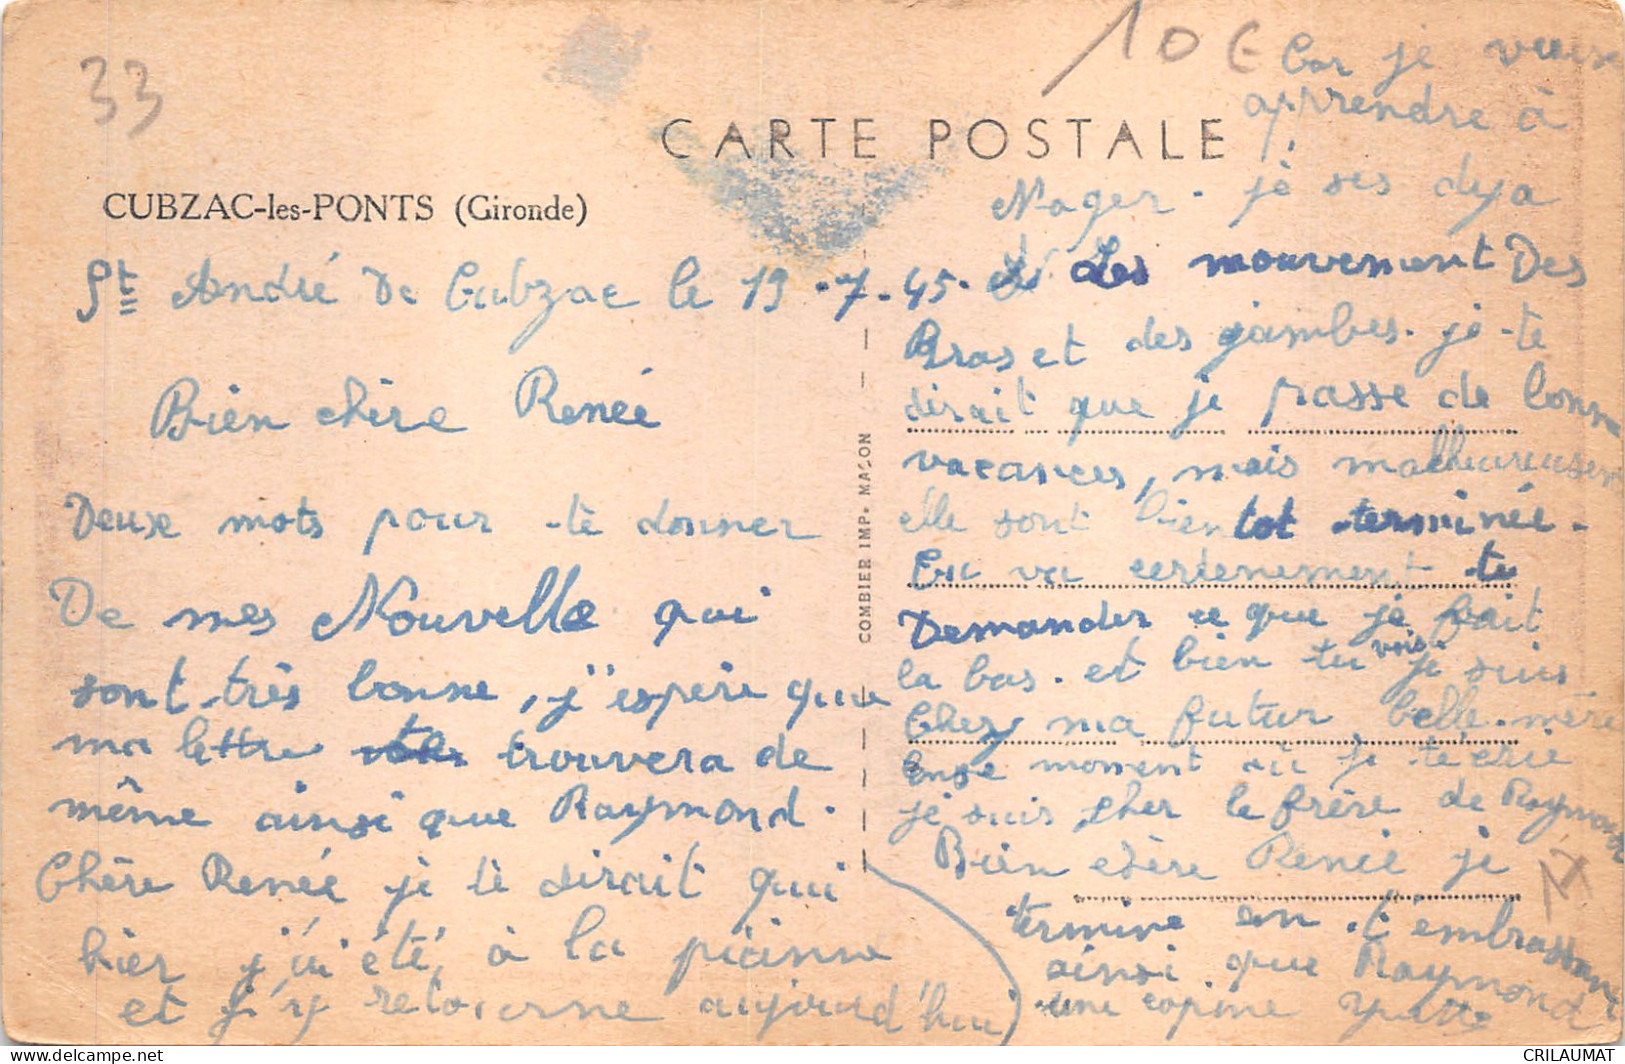 33
10 €
CARTE POSTALE
CUBZAC-les-PONTS (Gironde)
COMBIER IMP. MACON
St André De Cubzac le 19-7-45.
Bien chère Renée
Deuxe mots pour te donner
De mes Nouvelle qui
sont très bonne, j'espère que
ma lettre trouvera de
même ainsi que Raymond.
Chère Renée je tè dirait qui
hier j'ai été, à la picinne
et j'y retourne aujourd'hui
Car je veux
apprendre à
Nager. je ses deja
Les mouvement Des
Bras et des jambes. je te
dirait que je passe de bonne
vacances, mais malheureusement
elle sont bientot terminée.
tu va certenement te
Demander ce que je fait
la bas. et bien tu vois je suis
Chez ma futur belle-mère
En se moment où je t'écrie
je suis cher le frère de Raymond
Bien chère Renée je
termine en t'embrassant
ainsi que Raymond
une copine Yvette
CRILAUMAT